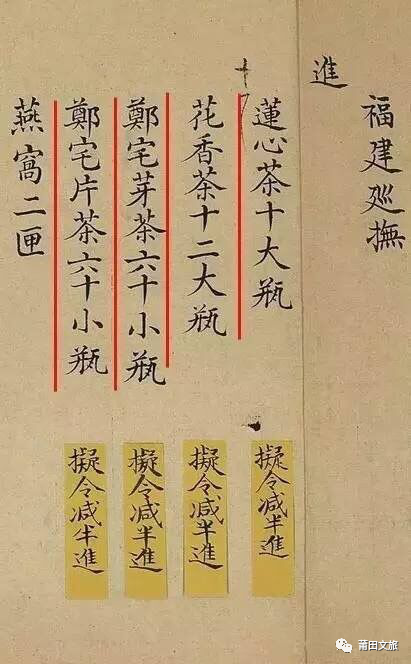 福建廵撫
進
蓮心茶十大瓶
花香茶十二大瓶
鄭宅芽茶六十小瓶
鄭宅片茶六十小瓶
燕窩二匣
擬令減半進
擬令減半進
擬令減半進
擬令減半進
莆田文旅